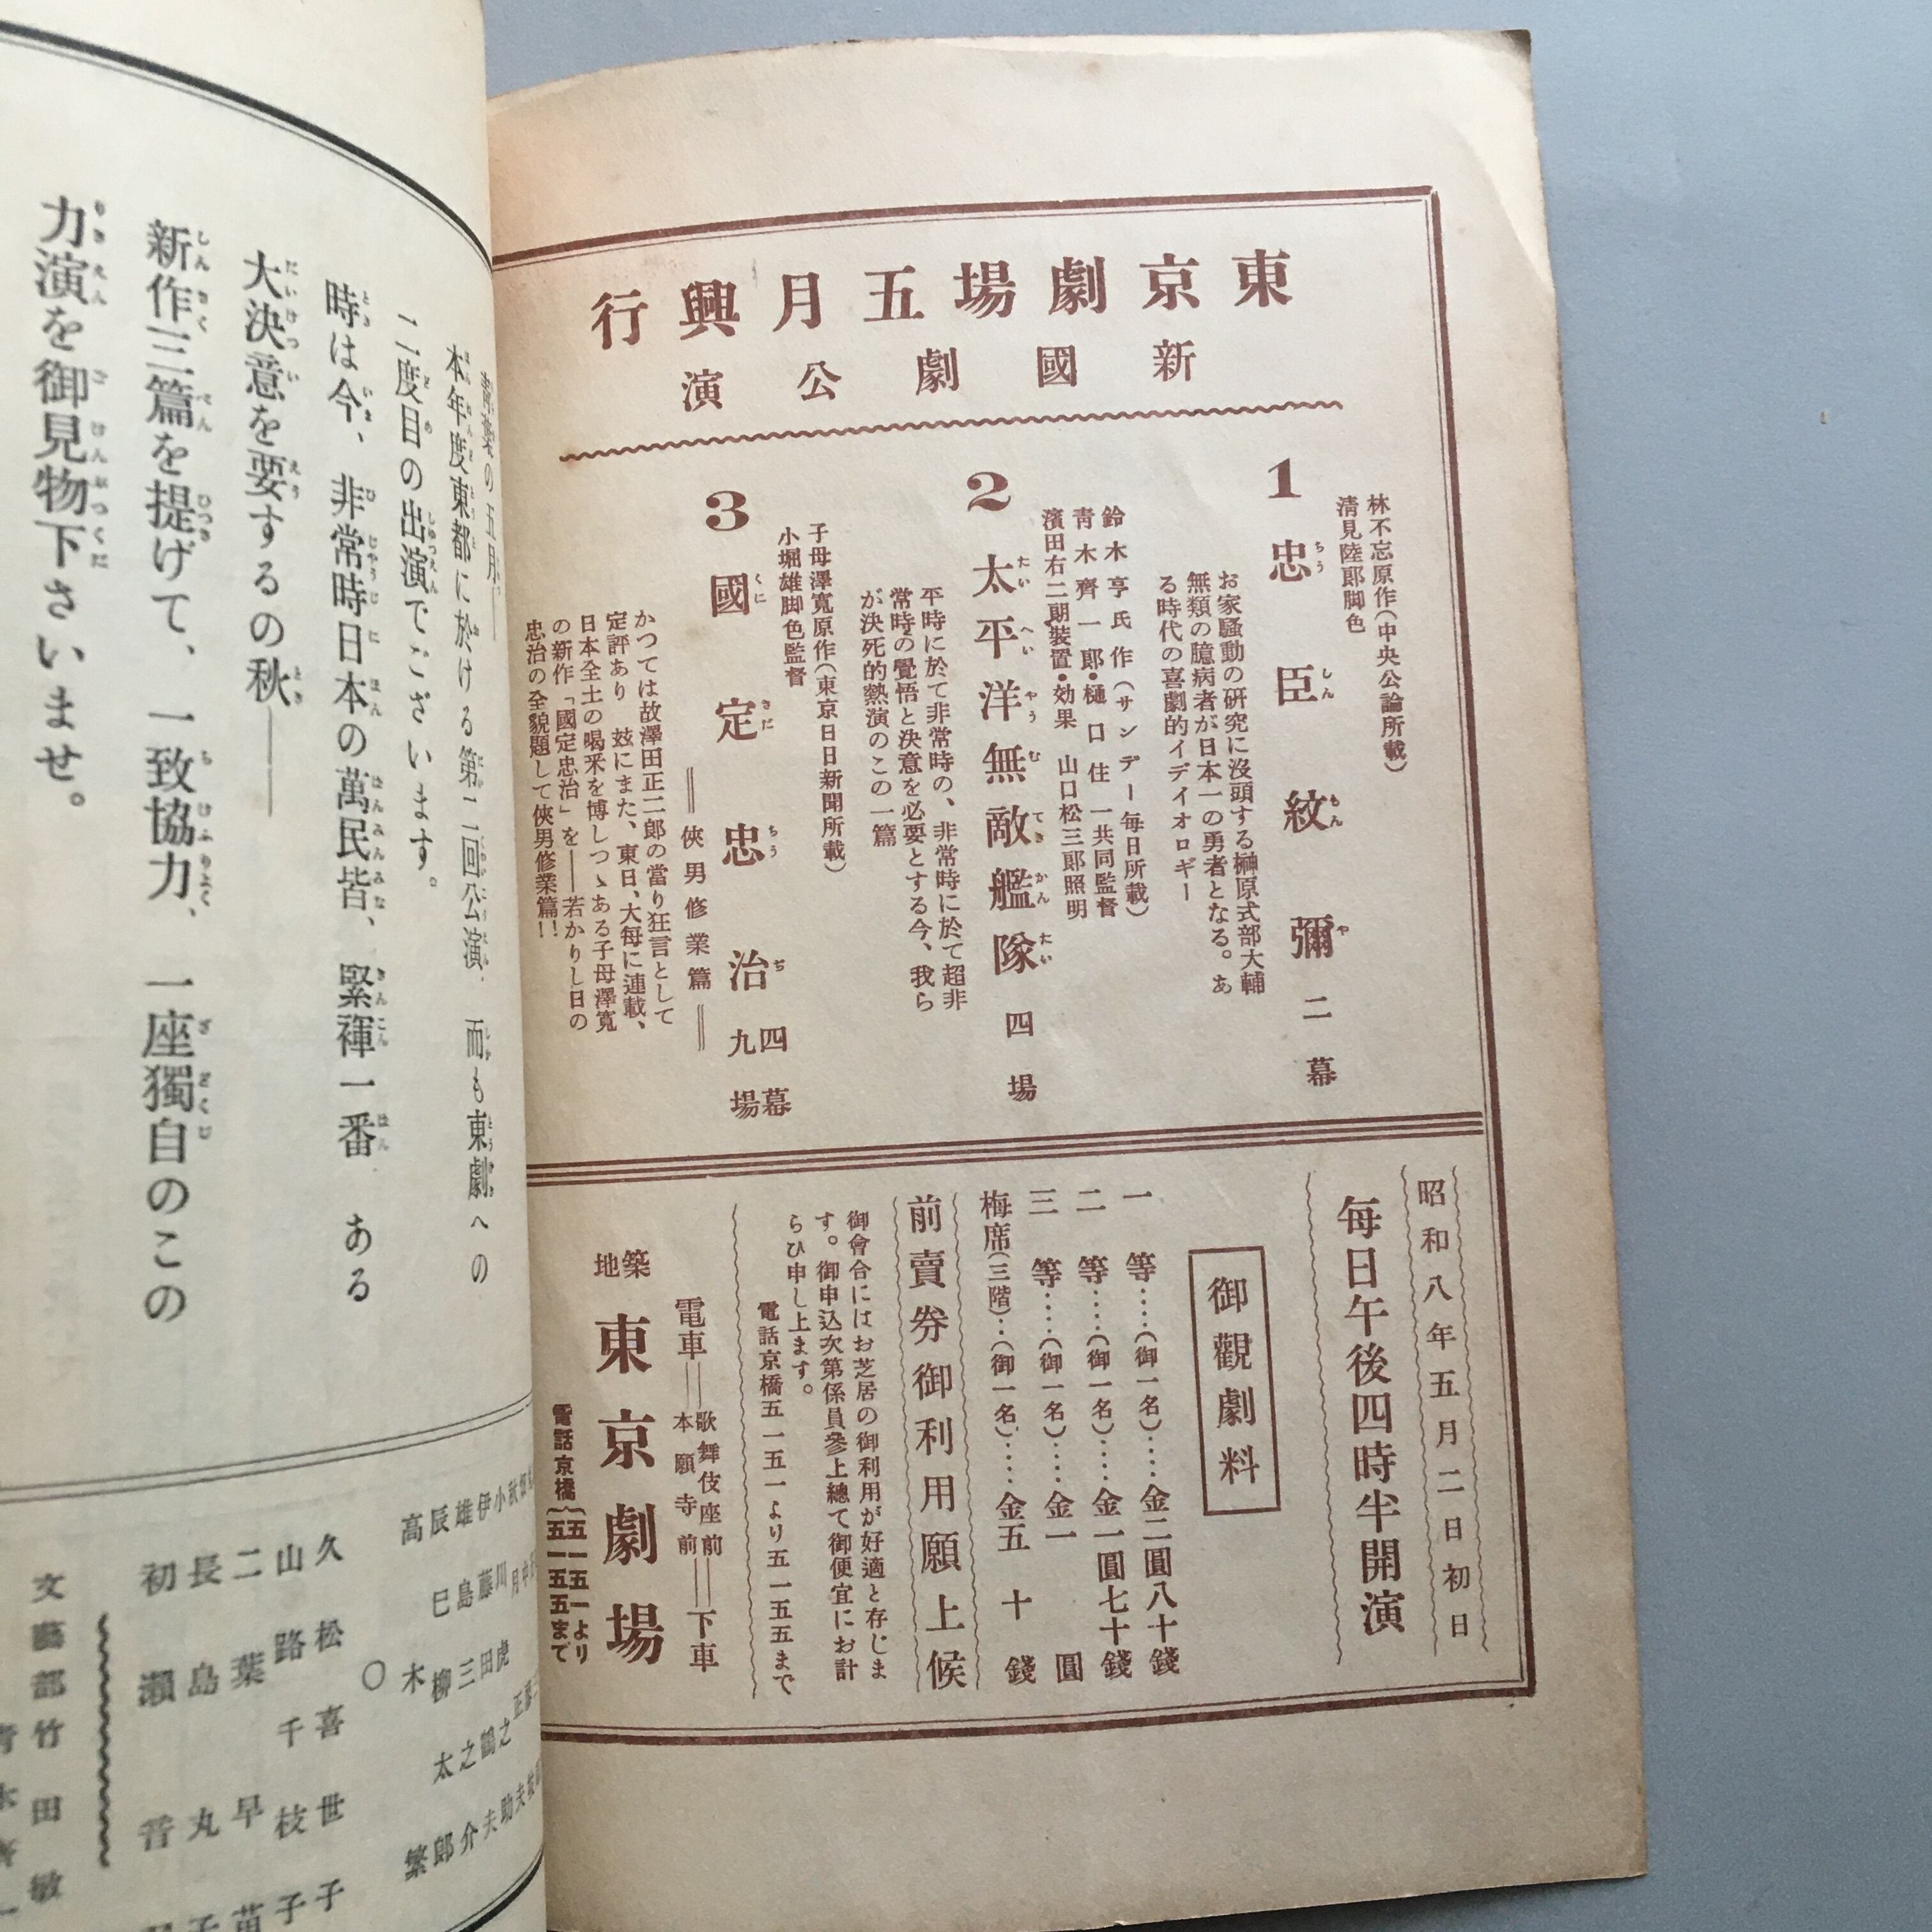 東京劇場五月興行
新國劇公演
林不忘原作(中央公論所載)
清見陸郎脚色
1 忠臣紋彌 二幕
ちうしんもんや
お家騷動の研究に沒頭する榊原式部大輔
無類の臆病者が日本一の勇者となる。あ
る時代の喜劇的イデイオロギー
鈴木亨氏作(サンデー每日所載)
靑木齊一郎・樋口住一共同監督
濱田右二朗裝置・効果 山口松三郎照明
2 太平洋無敵艦隊 四場
たいへいやうむてきかんたい
平時に於て非常時の、非常時に於て超非
常時の覺悟と決意を必要とする今、我ら
が決死的熱演のこの一篇
子母澤寬原作(東京日日新聞所載)
小堀雄脚色監督
3 國定忠治 四幕九場
くにさだちうぢ
==俠男修業篇==
かつては故澤田正二郎の當り狂言として
定評あり 玆にまた、東日、大每に連載、
日本全土の喝采を博しつゝある子母澤寬
の新作「國定忠治」を——若かりし日の
忠治の全貌題して俠男修業篇!!
昭和八年五月二日初日
每日午後四時半開演
御觀劇料
一等‥‥(御一名)‥‥金二圓八十錢
二等‥‥(御一名)‥‥金一圓七十錢
三等‥‥(御一名)‥‥金一圓
梅席(三階)‥(御一名)‥‥金五十錢
前賣券御利用願上候
御會合にはお芝居の御利用が好適と存じま
す。御申込次第係員參上總て御便宜にお計
らひ申し上ます。
電話京橋五一五一より五一五五まで
電車==歌舞伎座前 本願寺前==下車
築地 東京劇場
電話京橋{五一五一より 五一五五まで
の五月——
本年度東都に於ける第二回公演、而も東劇への
二度目の出演でございます。
時は今、非常時日本の萬民皆、緊褌一番 ある
大決意を要するの秋——
新作三篇を提げて、一致協力、一座獨自のこの
力演を御見物下さいませ。
久松喜世子
山路千枝子
二葉早苗
長島丸子
初瀨
文藝部竹田敏